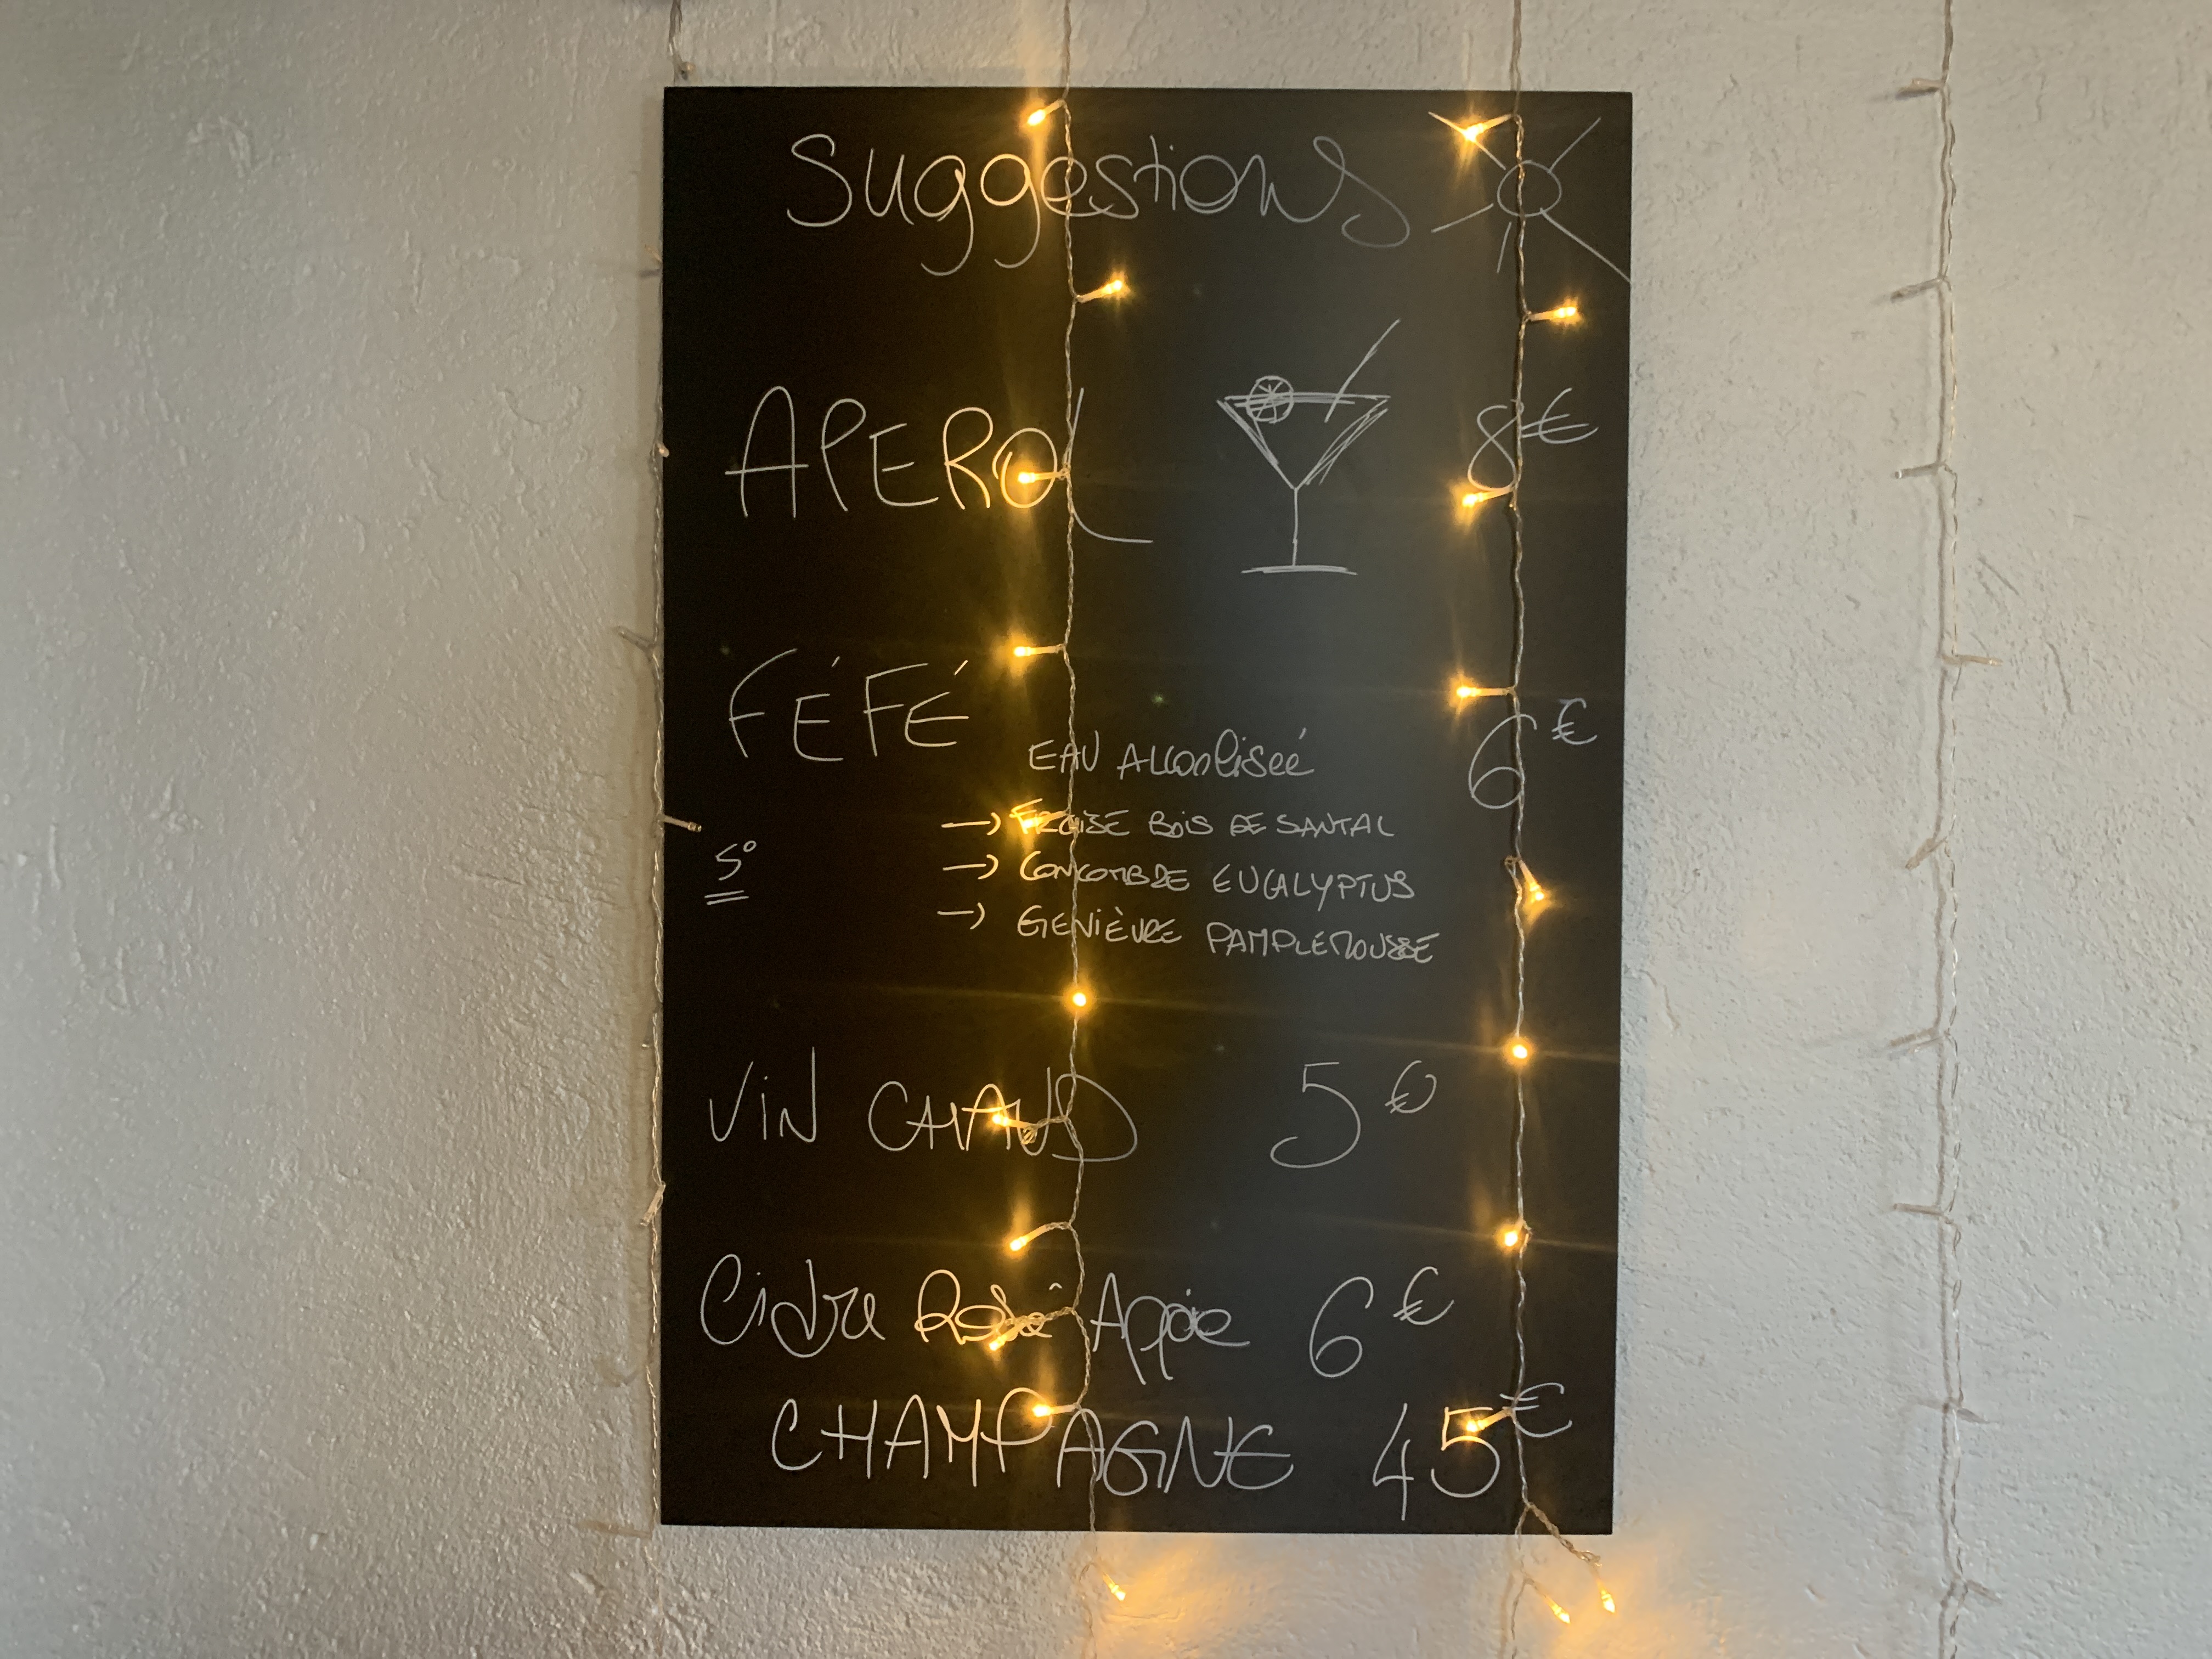 Suggestions
APEROL 8€
FÉFÉ
EAU Alcoolisée 6€
→ FRAISE BOIS DE SANTAL
5°
→ CONCOMBRE EUCALYPTUS
→ GENIÈVRE PAMPLEMOUSSE
VIN CHAUD 5€
Cidre Appie 6€
CHAMPAGNE 45€